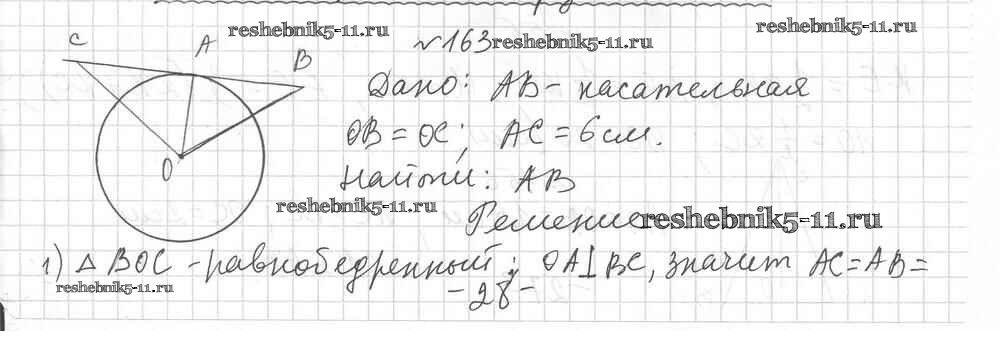 reshebnik5-11.ru
№163 reshebnik5-11.ru
reshebnik5-11.ru
C A B
Дано: AB - касательная
OB = OC; AC = 6 см.
O
Найти: AB
reshebnik5-11.ru
Решение reshebnik5-11.ru
1) △ BOC - равнобедренный; OA⊥BC, значит AC = AB =
reshebnik5-11.ru
- 28 -